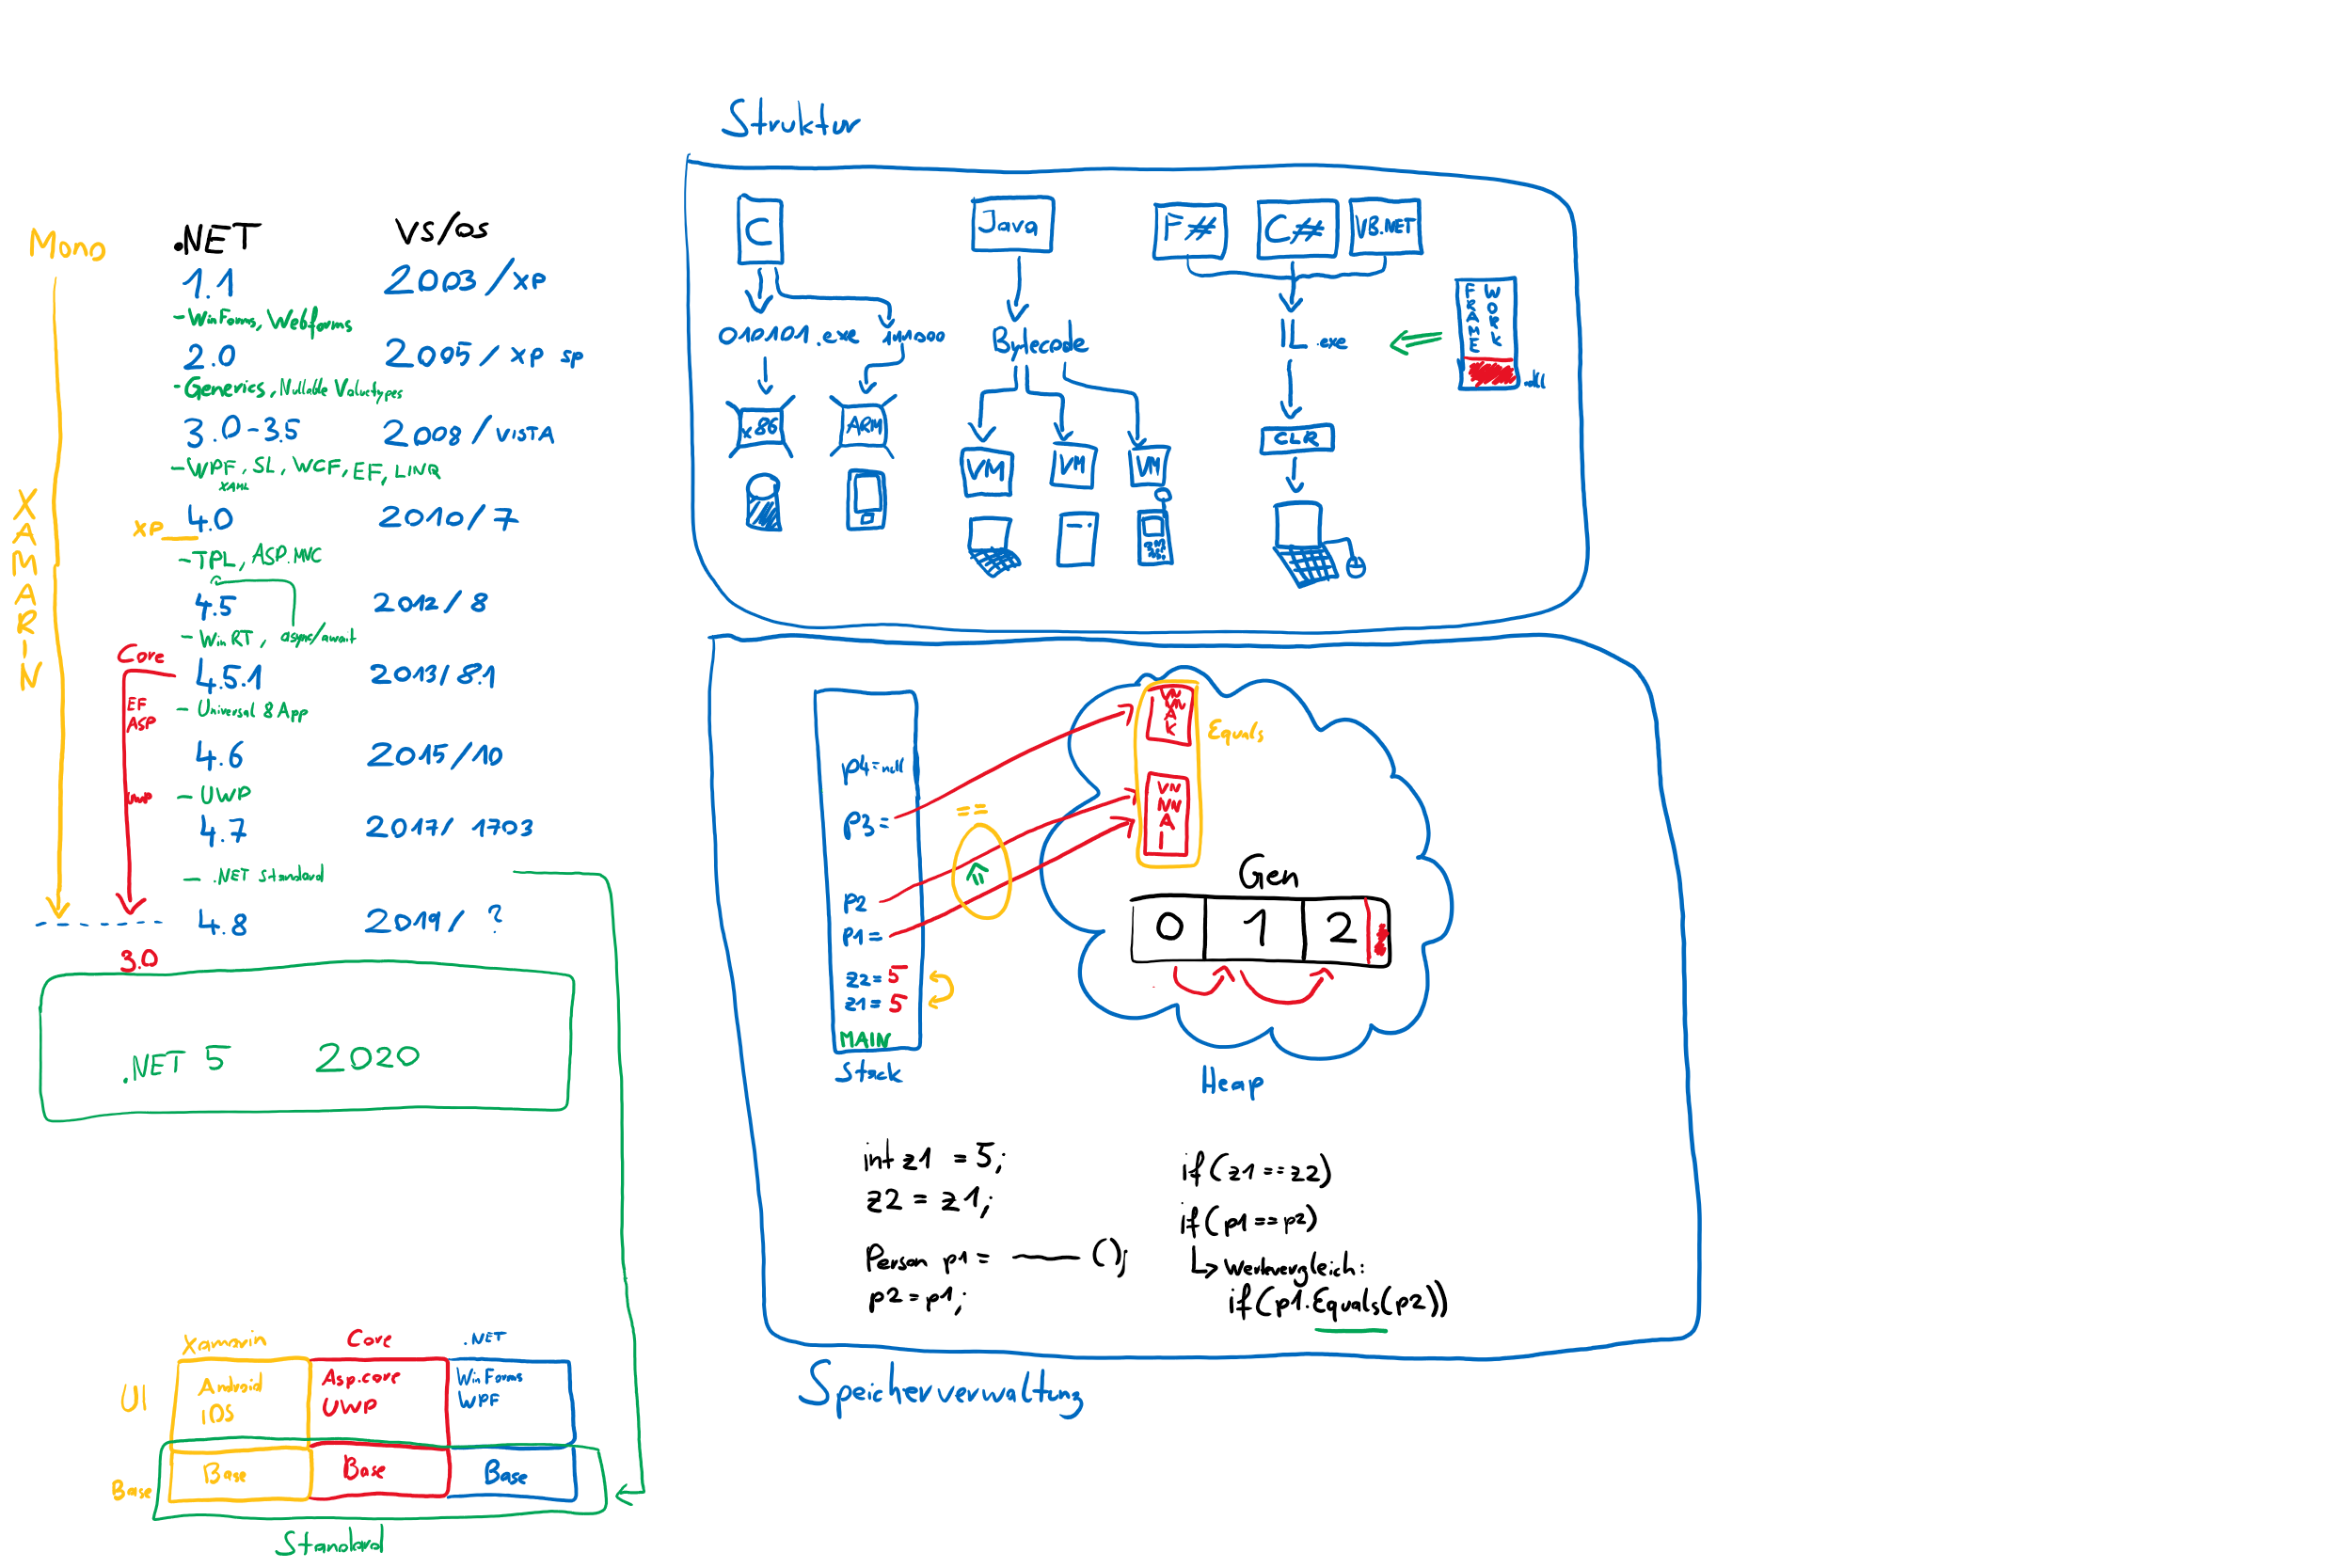 Mono
XAMARIN
.NET VS/OS
1.1 2003/XP
- WinForms, Webforms
2.0 2005/XP SP
- Generics, Nullable Valuetypes
3.0-3.5 2008/VISTA
- WPF, SL, WCF, EF, LINQ
XAML
XP 4.0 2010/7
- TPL, ASP.MVC
4.5 2012/8
- WinRT, async/await
Core
4.5.1 2013/8.1
EF
ASP
- Universal 8 App
4.6 2015/10
UWP
- UWP
4.7 2017/1703
- .NET Standard
4.8 2019/?
3.0
.NET 5 2020
Xamarin Core .NET
UI
Android
iOS
Asp.core
UWP
WinForms
WPF
Base
Base Base Base
Standard
Struktur
C Java F# C# VB.NET
FRAME
WORK
.dll
010101.exe
Bytecode
IL.exe
x86 ARM
VM VM VM
CLR
p4=null
p3=
p2
p1=
z2=5
z1=5
MAIN
Stack
==
Equals
Gen
0 1 2
Heap
int z1 = 5;
z2 = z1;
Person p1 = —— ();
p2=p1;
if(z1==z2)
if(p1==p2)
Wertvergleich:
if(p1.Equals(p2))
Speicherverwaltung